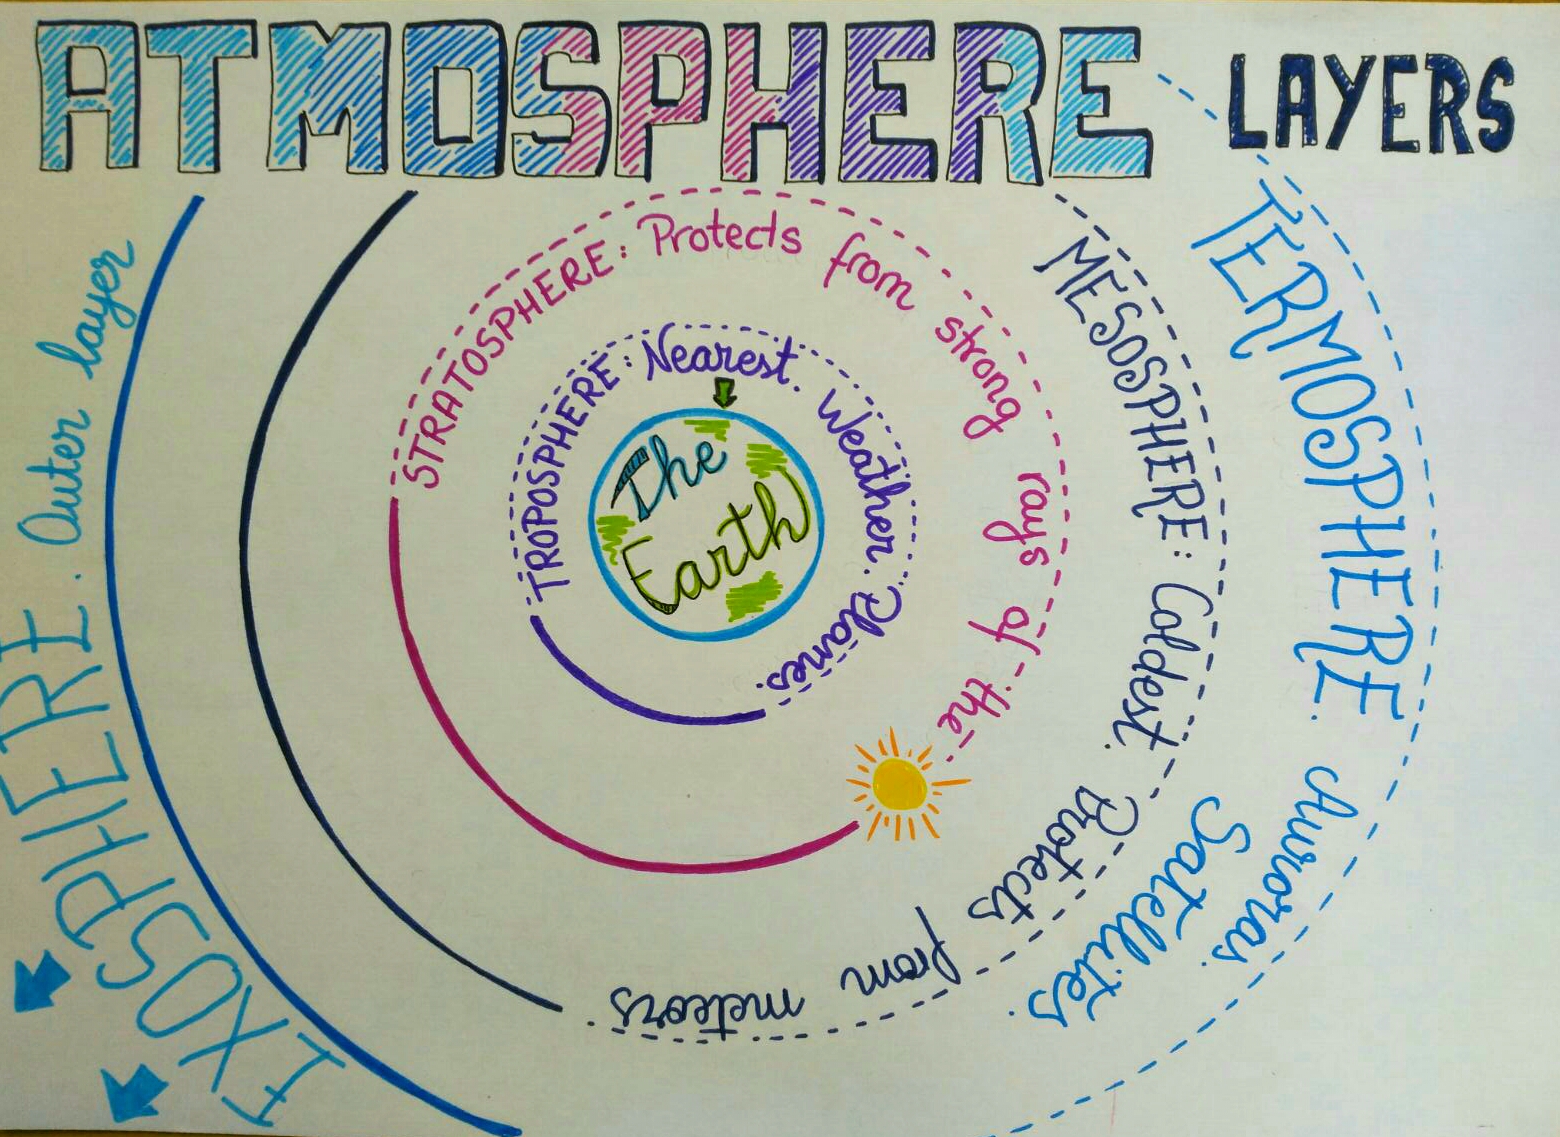 ATMOSPHERE LAYERS
The
Earth
TROPOSPHERE: Nearest. Weather. Planes.
STRATOSPHERE: Protects from strong rays of the
MESOSPHERE: Coldest. Protects from meteors
TERMOSPHERE. Auroras.
Satellites.
EXOSPHERE. Outer layer